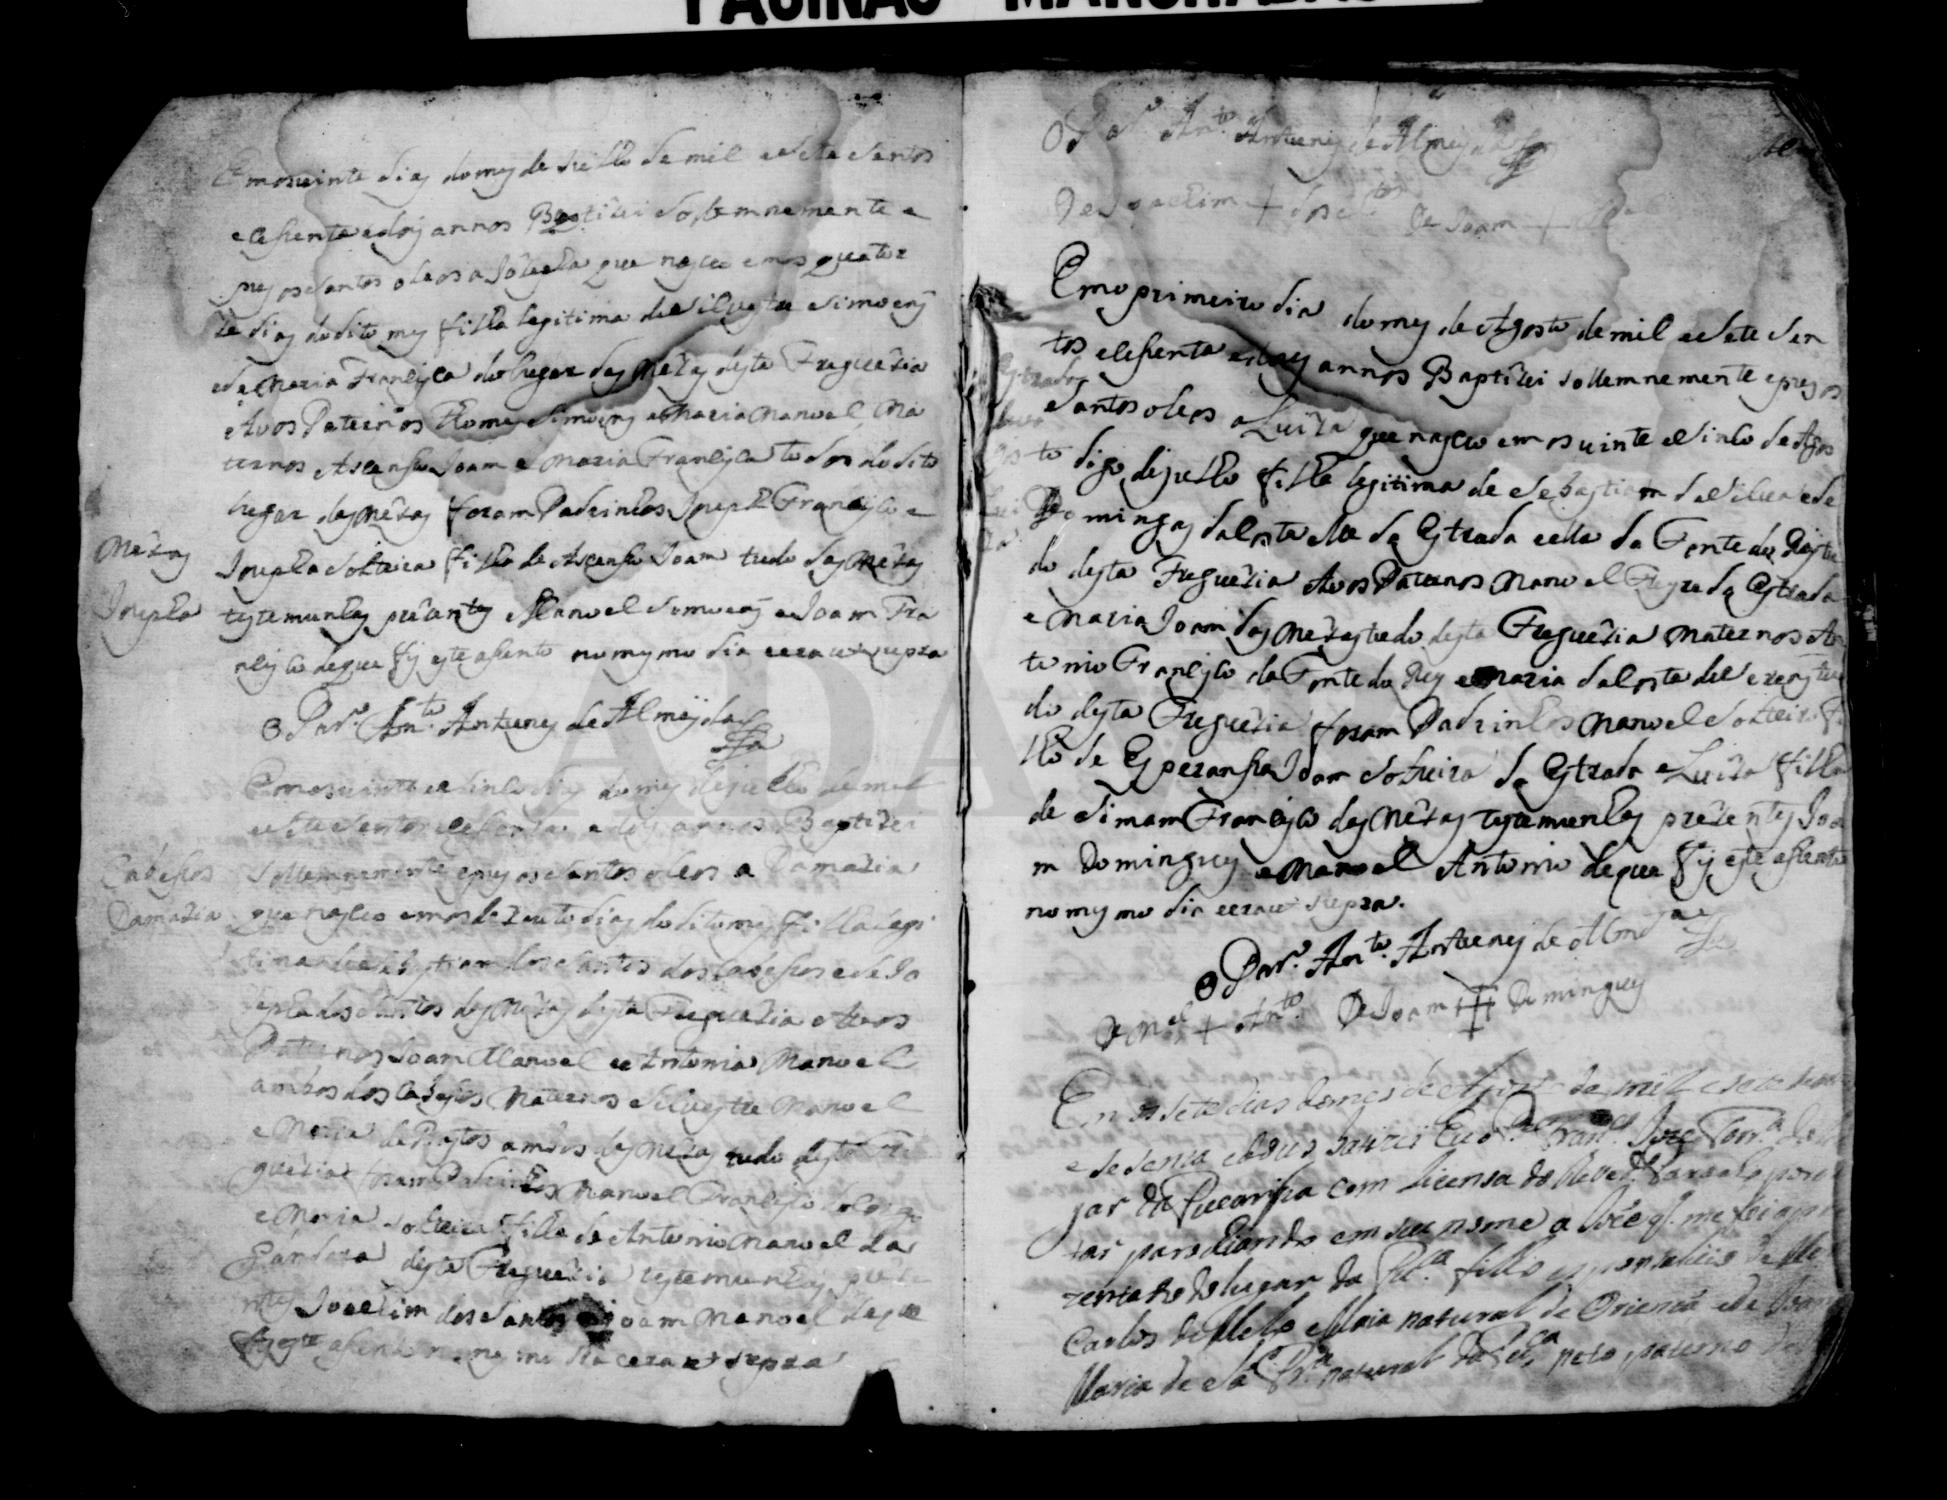 PAGINAS MANCHADAS
Em os vinte dias do mes de Julho de mil e sete sentos
e sesenta e dois annos Baptizei solemnemente e
pus os santos oleos a Jozepha que nasceo em os quator
ze dias do dito mes filha legitima de Silvestre Simoens
e de Maria Francisca do lugar das Mezas desta Freguezia
Avos Paternos Thome Simoens e Maria Manoel Ma
ternos Ascenso Joam e Maria Francisca todos do dito
lugar das Mezas foram Padrinhos Joseph Francisco e
Mezas
Josepha
Josepha solteira filha de Ascenso Joam tudo das Mezas
testemunhas prezentes Manoel Simoens e Joam Fra
ncisco de que fis este asento no mesmo dia e era ut supra
O Par.º Ant.º Antunes de Almeyda
Em os vinte e sinco dias do mes de Julho de mil
e sete sentos e sesenta e dois annos Baptizei
Cabesos
Damazia
solemnemente e pus os santos oleos a Damazia
que nasceo em os dezouto dias do dito mes filha legi
tima de Sebastiam dos Santos dos Cabesos e de Jo
sepha dos Santos das Mezas desta Freguezia Avos
Paternos Joam Manoel e Antonia Manoel
ambos dos Cabesos Maternos Silvestre Manoel
e Maria de Bastos ambos das Mezas tudo desta Fre
guezia foram Padrinhos Manoel Francisco
e Maria solteira filha de Antonio Manoel da
Gandara desta Freguezia testemunhas preze
ntes Joachim dos Santos e Joam Manoel de que
fis este asento no mesmo dia e era ut supra
O Par.º Ant.º Antunes de Almeyda
De Joachim + dos S.tos De Joam + M.el
Em o primeiro dia do mes de Agosto de mil e sete sen
tos e sesenta e dois annos Baptizei solemnemente e pus os
Estrada
Lui
za
santos oleos a Luiza que nasceo em os vinte e sinco de Agos
to digo de Julho filha legitima de Sebastiam da Silva e de
Domingas da Costa elle da Estrada e ella da Fonte do Rey tu
do desta Freguezia Avos Paternos Manoel Freyre da Estrada
e Maria Joam das Mezas tudo desta Freguezia Maternos An
tonio Francisco da Fonte do Rey e Maria da Costa tu
do desta Freguezia foram Padrinhos Manoel solteiro fi
lho de Esperansa Joam solteira da Estrada e Luiza filha
de Simam Francisco das Mezas testemunhas prezentes Joa
m Domingues e Manoel Antonio de que fis este asento
no mesmo dia e era ut supra.
O Par.º Ant.º Antunes de Almeyda
De M.el + Ant.º De Joam + Domingues
Em os sete dias do mes de Agosto de mil e sete sen
e sesenta e dous batizei Eu o P.e Fran.co Jorge
gar da Pucarisa com licensa do Rever.do Parocho
tar em seu nome a
zentado do lugar da filho de Ma
Carlos de Mello e Maia natural de e de Joan
Maria de Sá natural da neto paterno de